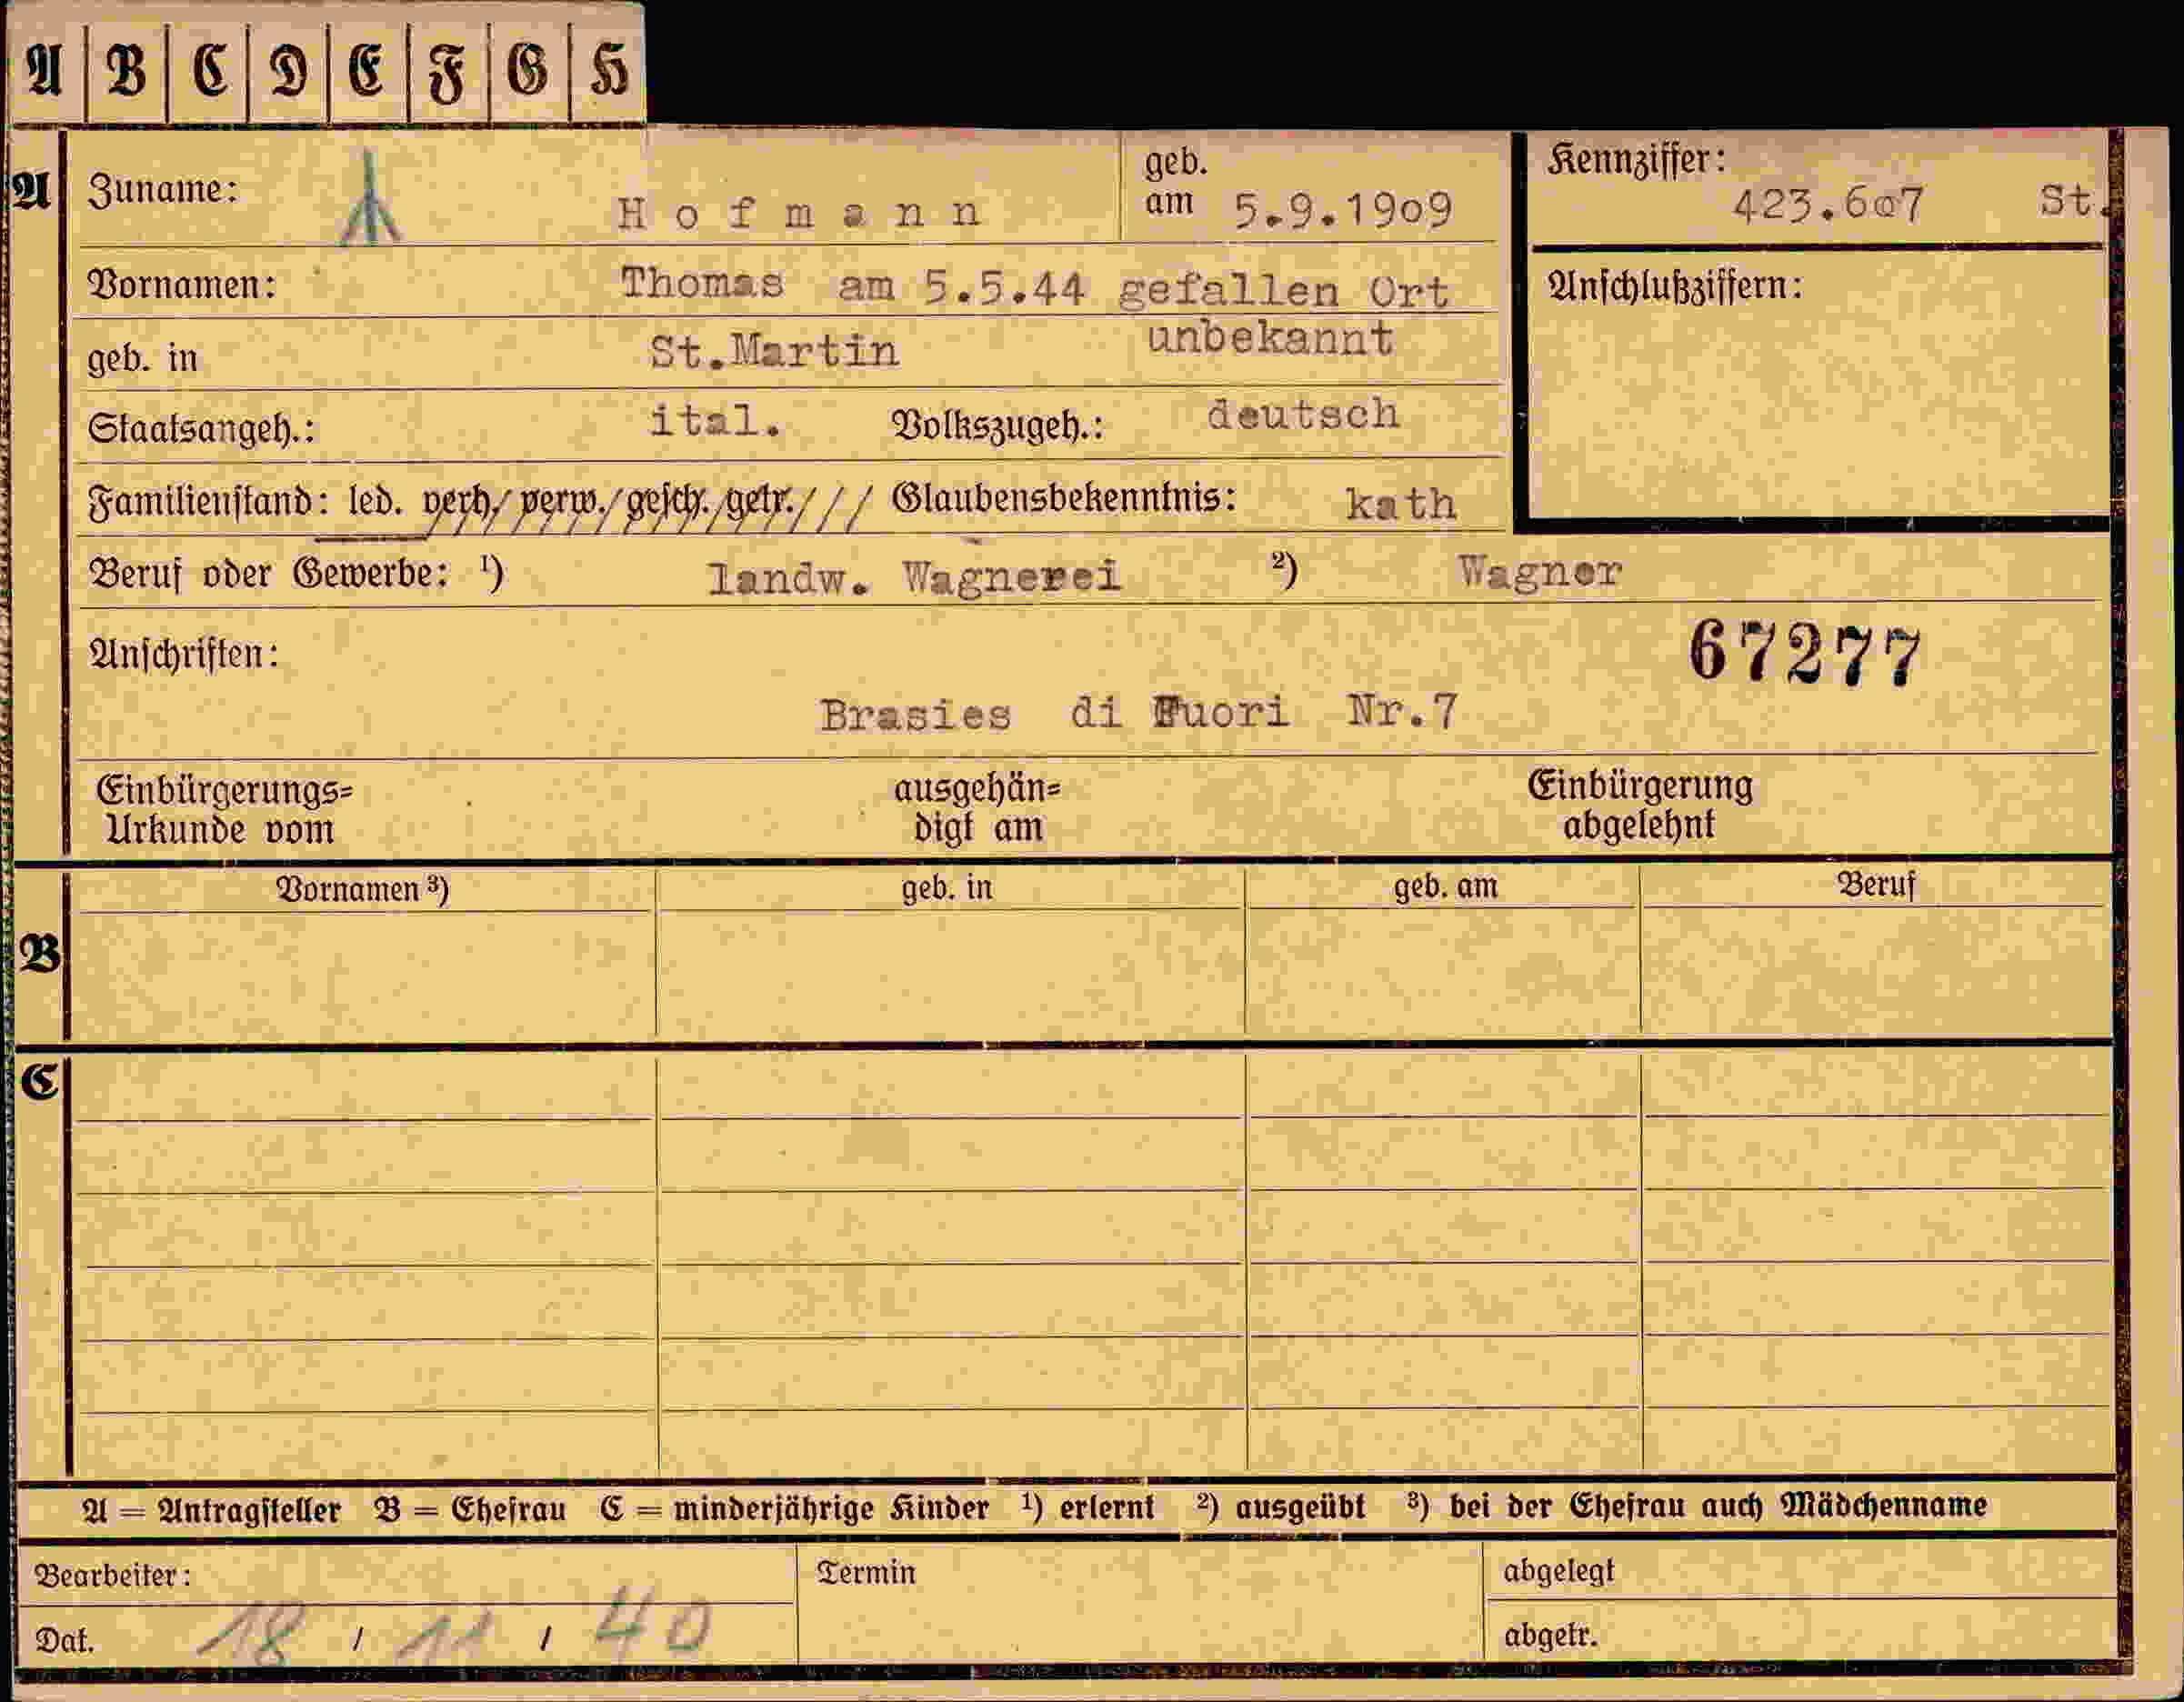 A B C D E F G H
A Zuname: Hofmann geb. am 5.9.1909 Kennziffer: 423.607 St.
Vornamen: Thomas am 5.5.44 gefallen Ort Anschlußziffern:
geb. in St.Martin unbekannt
Staatsangeh.: ital. Volkszugeh.: deutsch
Familienstand: led. verh. verw. gesch. getr. Glaubensbekenntnis: kath
Beruf oder Gewerbe: ¹) landw. Wagnerei ²) Wagner
Anschriften: 67277
Brasies di Fuori Nr.7
Einbürgerungs= ausgehän= Einbürgerung
Urkunde vom digt am abgelehnt
B Vornamen ³) geb. in geb. am Beruf
C
A = Antragsteller B = Ehefrau C = minderjährige Kinder ¹) erlernt ²) ausgeübt ³) bei der Ehefrau auch Mädchenname
Bearbeiter: Termin abgelegt
Dat. 18 / 11 / 40 abgetr.